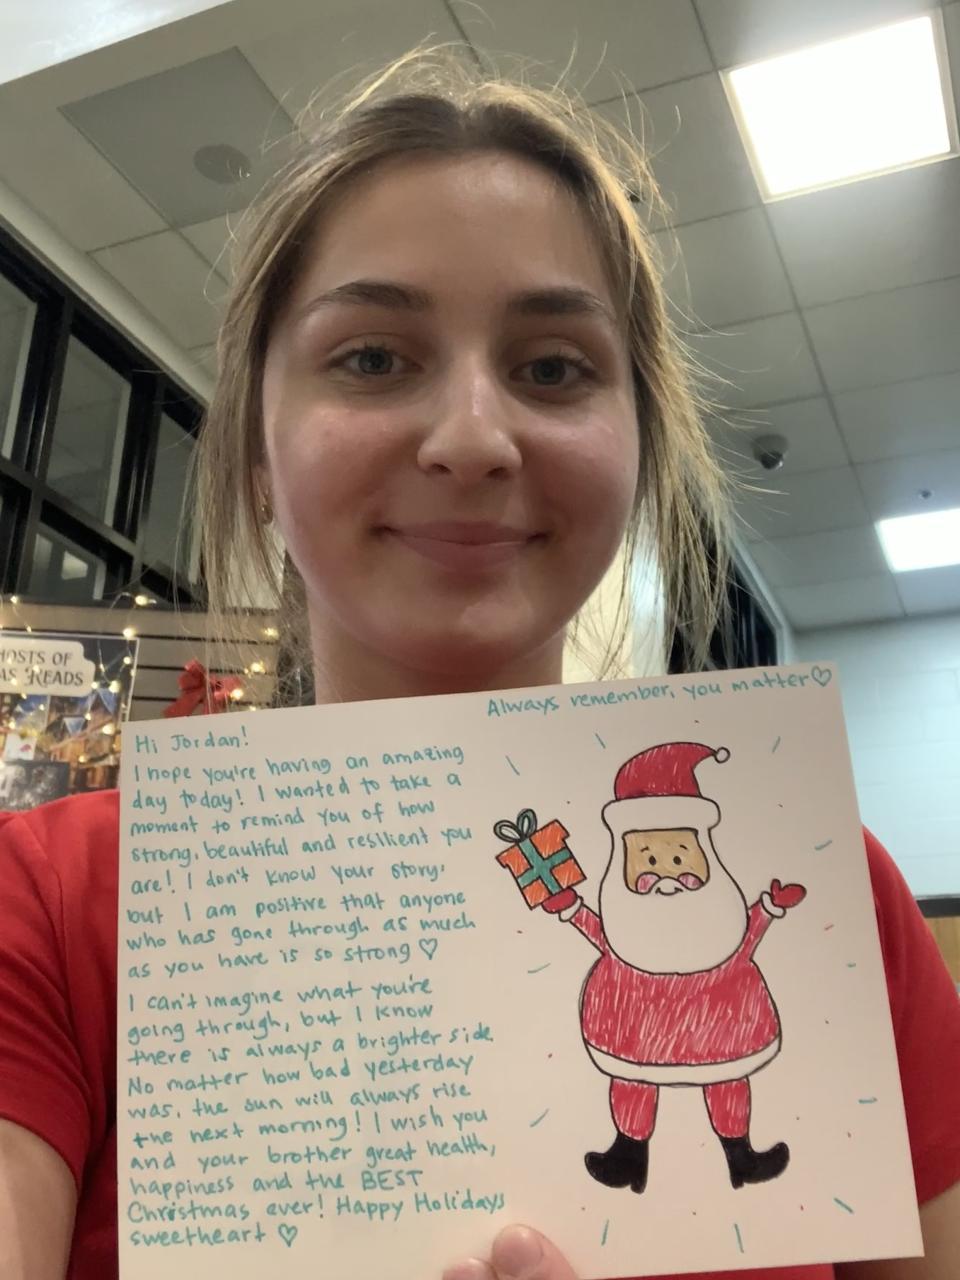 OSTS OF
AS READS
Always remember, you matter♡
Hi Jordan!
I hope you're having an amazing
day today! I wanted to take a
moment to remind you of how
strong, beautiful and resilient you
are! I don't know your story,
but I am positive that anyone
who has gone through as much
as you have is so strong ♡
I can't imagine what you're
going through, but I know
there is always a brighter side.
No matter how bad yesterday
was, the sun will always rise
the next morning! I wish you
and your brother great health,
happiness and the BEST
Christmas ever! Happy Holidays
sweetheart ♡